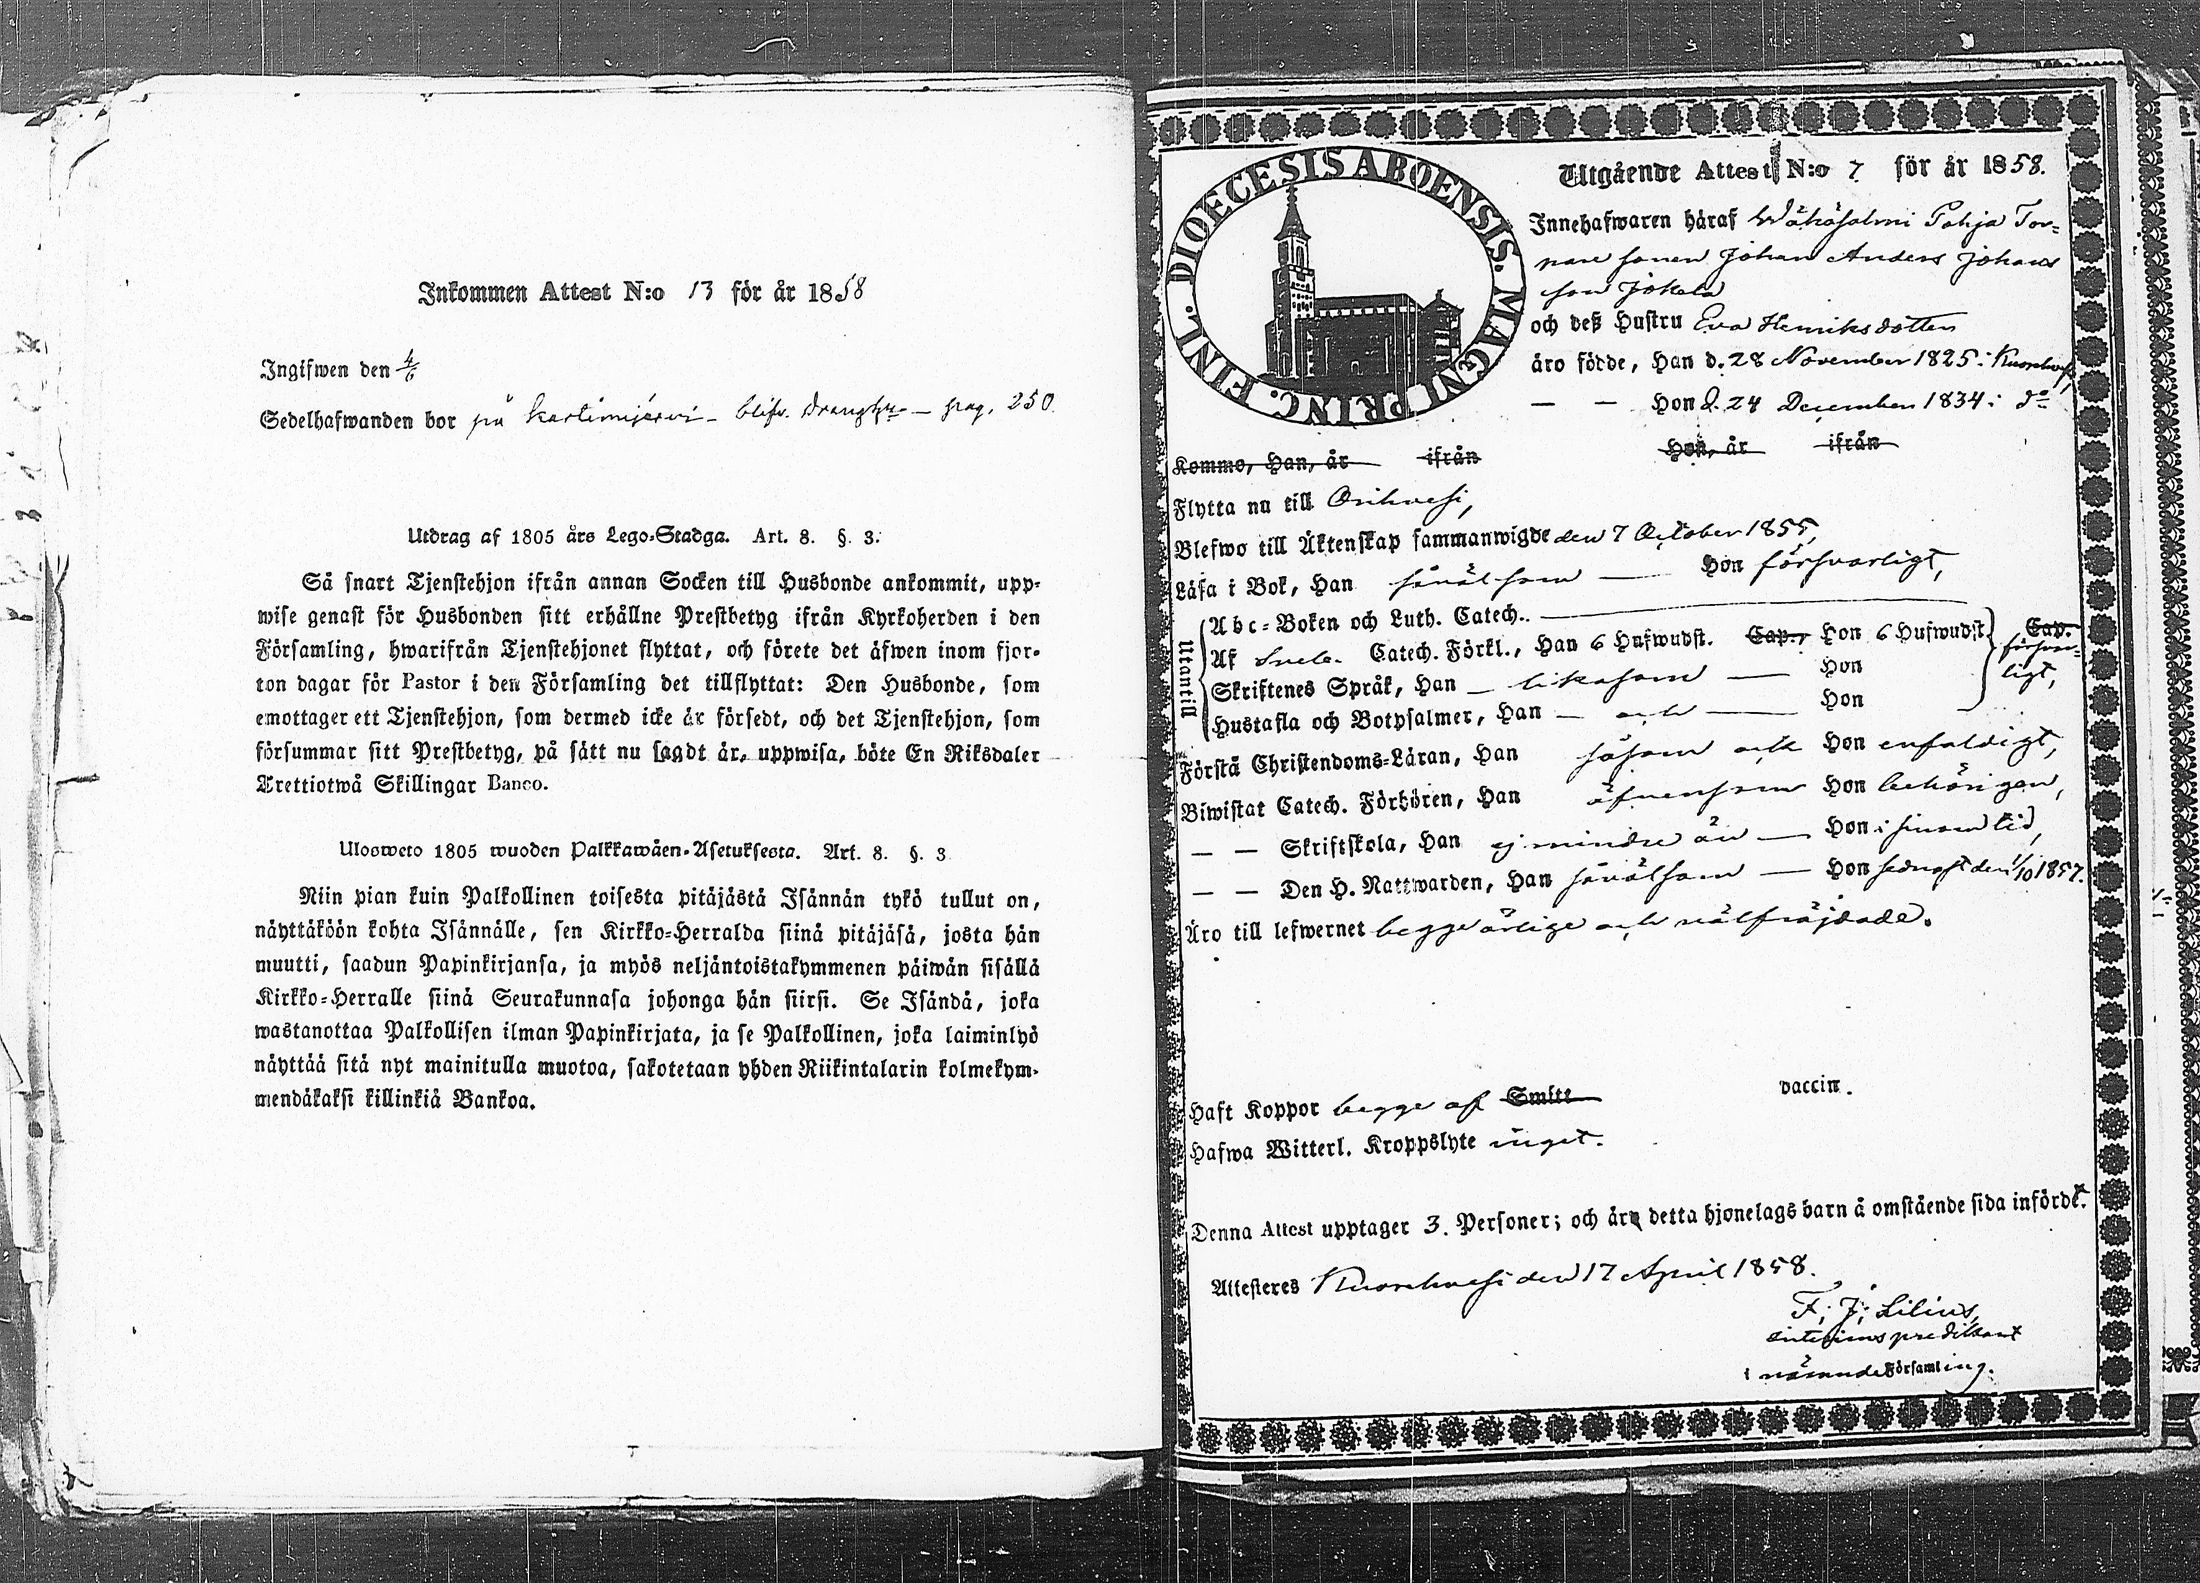 Inkommen Attest N:o 13 för år 1858
Ingifwen den 4/6
Sedelhafwanden bor på Karlimijärvi - blifv. - pag. 250.
Utdrag af 1805 års Lego-Stadga. Art. 8. §. 3.
Så snart Tjenstehjon ifrån annan Socken till Husbonde ankommit, upp-
wise genast för Husbonden sitt erhållne Prestbetyg ifrån Kyrkoherden i den
Församling, hwarifrån Tjenstehjonet flyttat, och förete det äfwen inom fjor-
ton dagar för Pastor i den Församling det tillflyttat: Den Husbonde, som
emottager ett Tjenstehjon, som dermed icke är försedt, och det Tjenstehjon, som
försummar sitt Prestbetyg, på sätt nu sagdt är, uppwisa, böte En Riksdaler
Trettiotwå Skillingar Banco.
Ulosweto 1805 wuoden Palkkawäen-Asetuksesta. Art. 8. §. 3
Niin pian kuin Palkollinen toisesta pitäjästä Isännän tykö tullut on,
näyttäköön kohta Isännälle, sen Kirkko-Herralda siinä pitäjäsä, josta hän
muutti, saadun Papinkirjansa, ja myös neljäntoistakymmenen päiwän sisällä
Kirkko-Herralle siinä Seurakunnasa johonga hän siirsi. Se Isändä, joka
wastanottaa Palkollisen ilman Papinkirjata, ja se Palkollinen, joka laiminlyö
näyttää sitä nyt mainitulla muotoa, sakotetaan yhden Riikintalarin kolmekym-
mendäkaksi killinkiä Bankoa.
DIOECESIS ABOENSIS. MAGNI PRINC. FINL.
Utgående Attest N:o 7 för år 1858.
Innehafwaren häraf Wähäsalmi Pohja Tor-
pare sonen Johan Anders Johans
son Jokela
och deß Hustru Eva Henriksdotter
äro födde, Han d. 28 November 1825 i Kuorehvesi,
— — Hon d. 24 December 1834 i do
Kommo, Han, år ifrån Hon, år ifrån
Flytta nu till Orihvesi,
Blefwo till Äktenskap sammanwigde den 7 October 1855,
Läsa i Bok, Han såväl som — Hon försvarligt,
Utantill
Abc-Boken och Luth. Catech..
Af Sveb. Catech. Förkl., Han 6 Hufwudst. Cap., Hon 6 Hufwudst. Cap. försvar-
Skriftenes Språk, Han — likasom — Hon ligt,
Hustafla och Botpsalmer, Han — och — Hon
Förstå Christendoms-Läran, Han såsom ock Hon enfaldigt,
Biwistat Catech. Förhören, Han äfvensom Hon behörigen,
— — Skriftskola, Han ej mindre än — Hon i sinom tid,
— — Den H. Nattwarden, Han såväl som — Hon sednast den 1/10 1857.
Äro till lefwernet begge ärlige och välfräjdade.
Haft Koppor begge af Smitt vaccin.
Hafwa Witterl. Kroppslyte inget.
Denna Attest upptager 3. Personer; och äro detta hjonelags barn å omstående sida införde.
Attesteres Kuorehvesi den 17 April 1858.
F. J. Lilius,
interims predikant
i närande Församling.